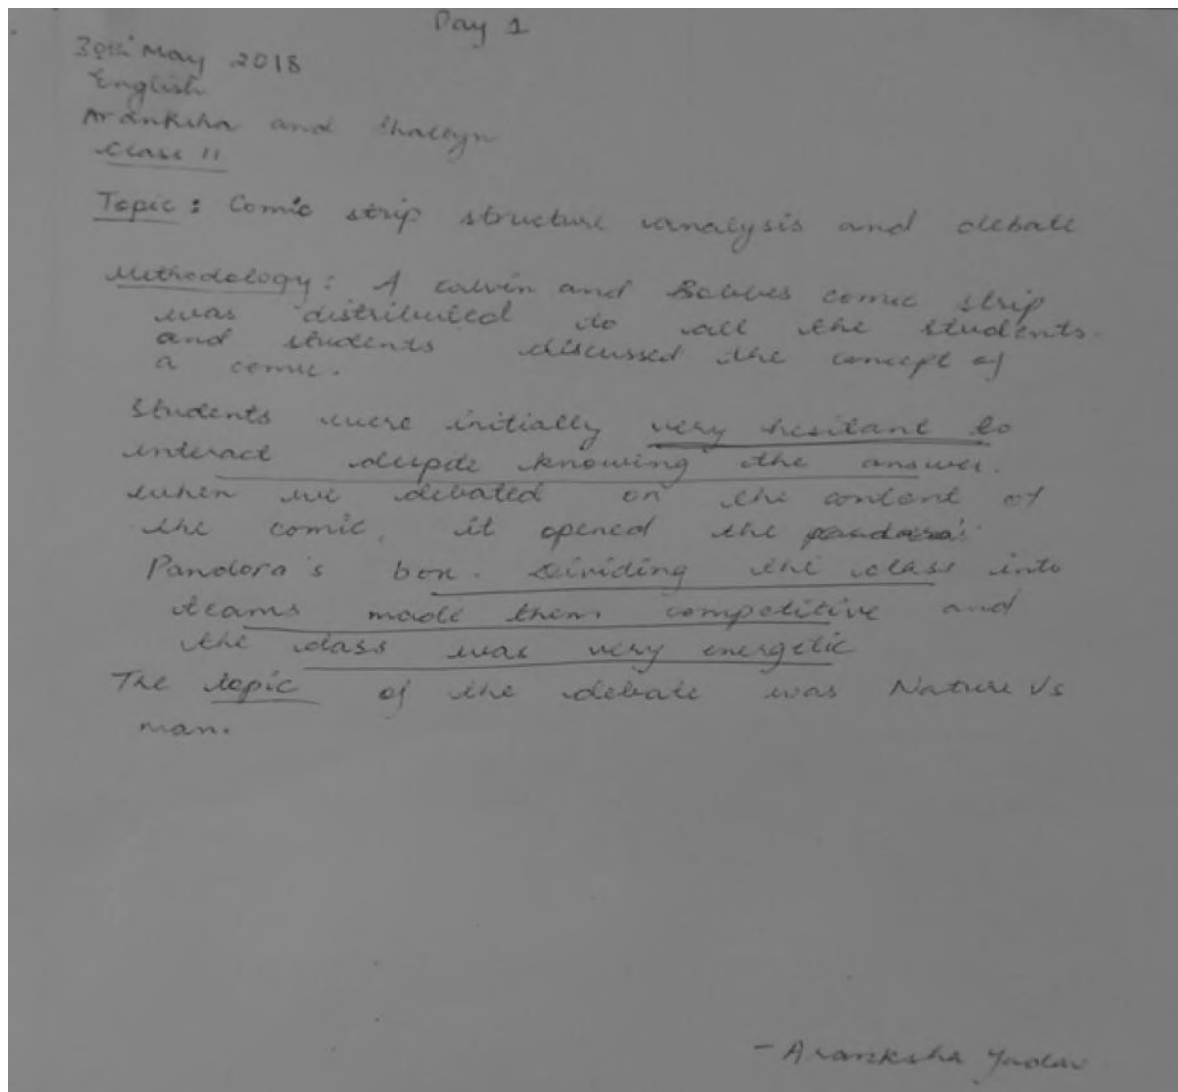 Day 1
30th May 2018
English
Aranksha and Shallyn
Class 11
Topic: Comic strip structure analysis and debate
Methodology: A calvin and Hobbes comic strip
was distributed to all the students.
and students discussed the concept of
a comic.
Students were initially very hesitant to
interact despite knowing the answer.
when we debated on the content of
the comic, it opened the
Pandora's box. Dividing the class into
teams made them competitive and
the class was very energetic
The topic of the debate was Nature Vs
man.
- Aranksha Yadav